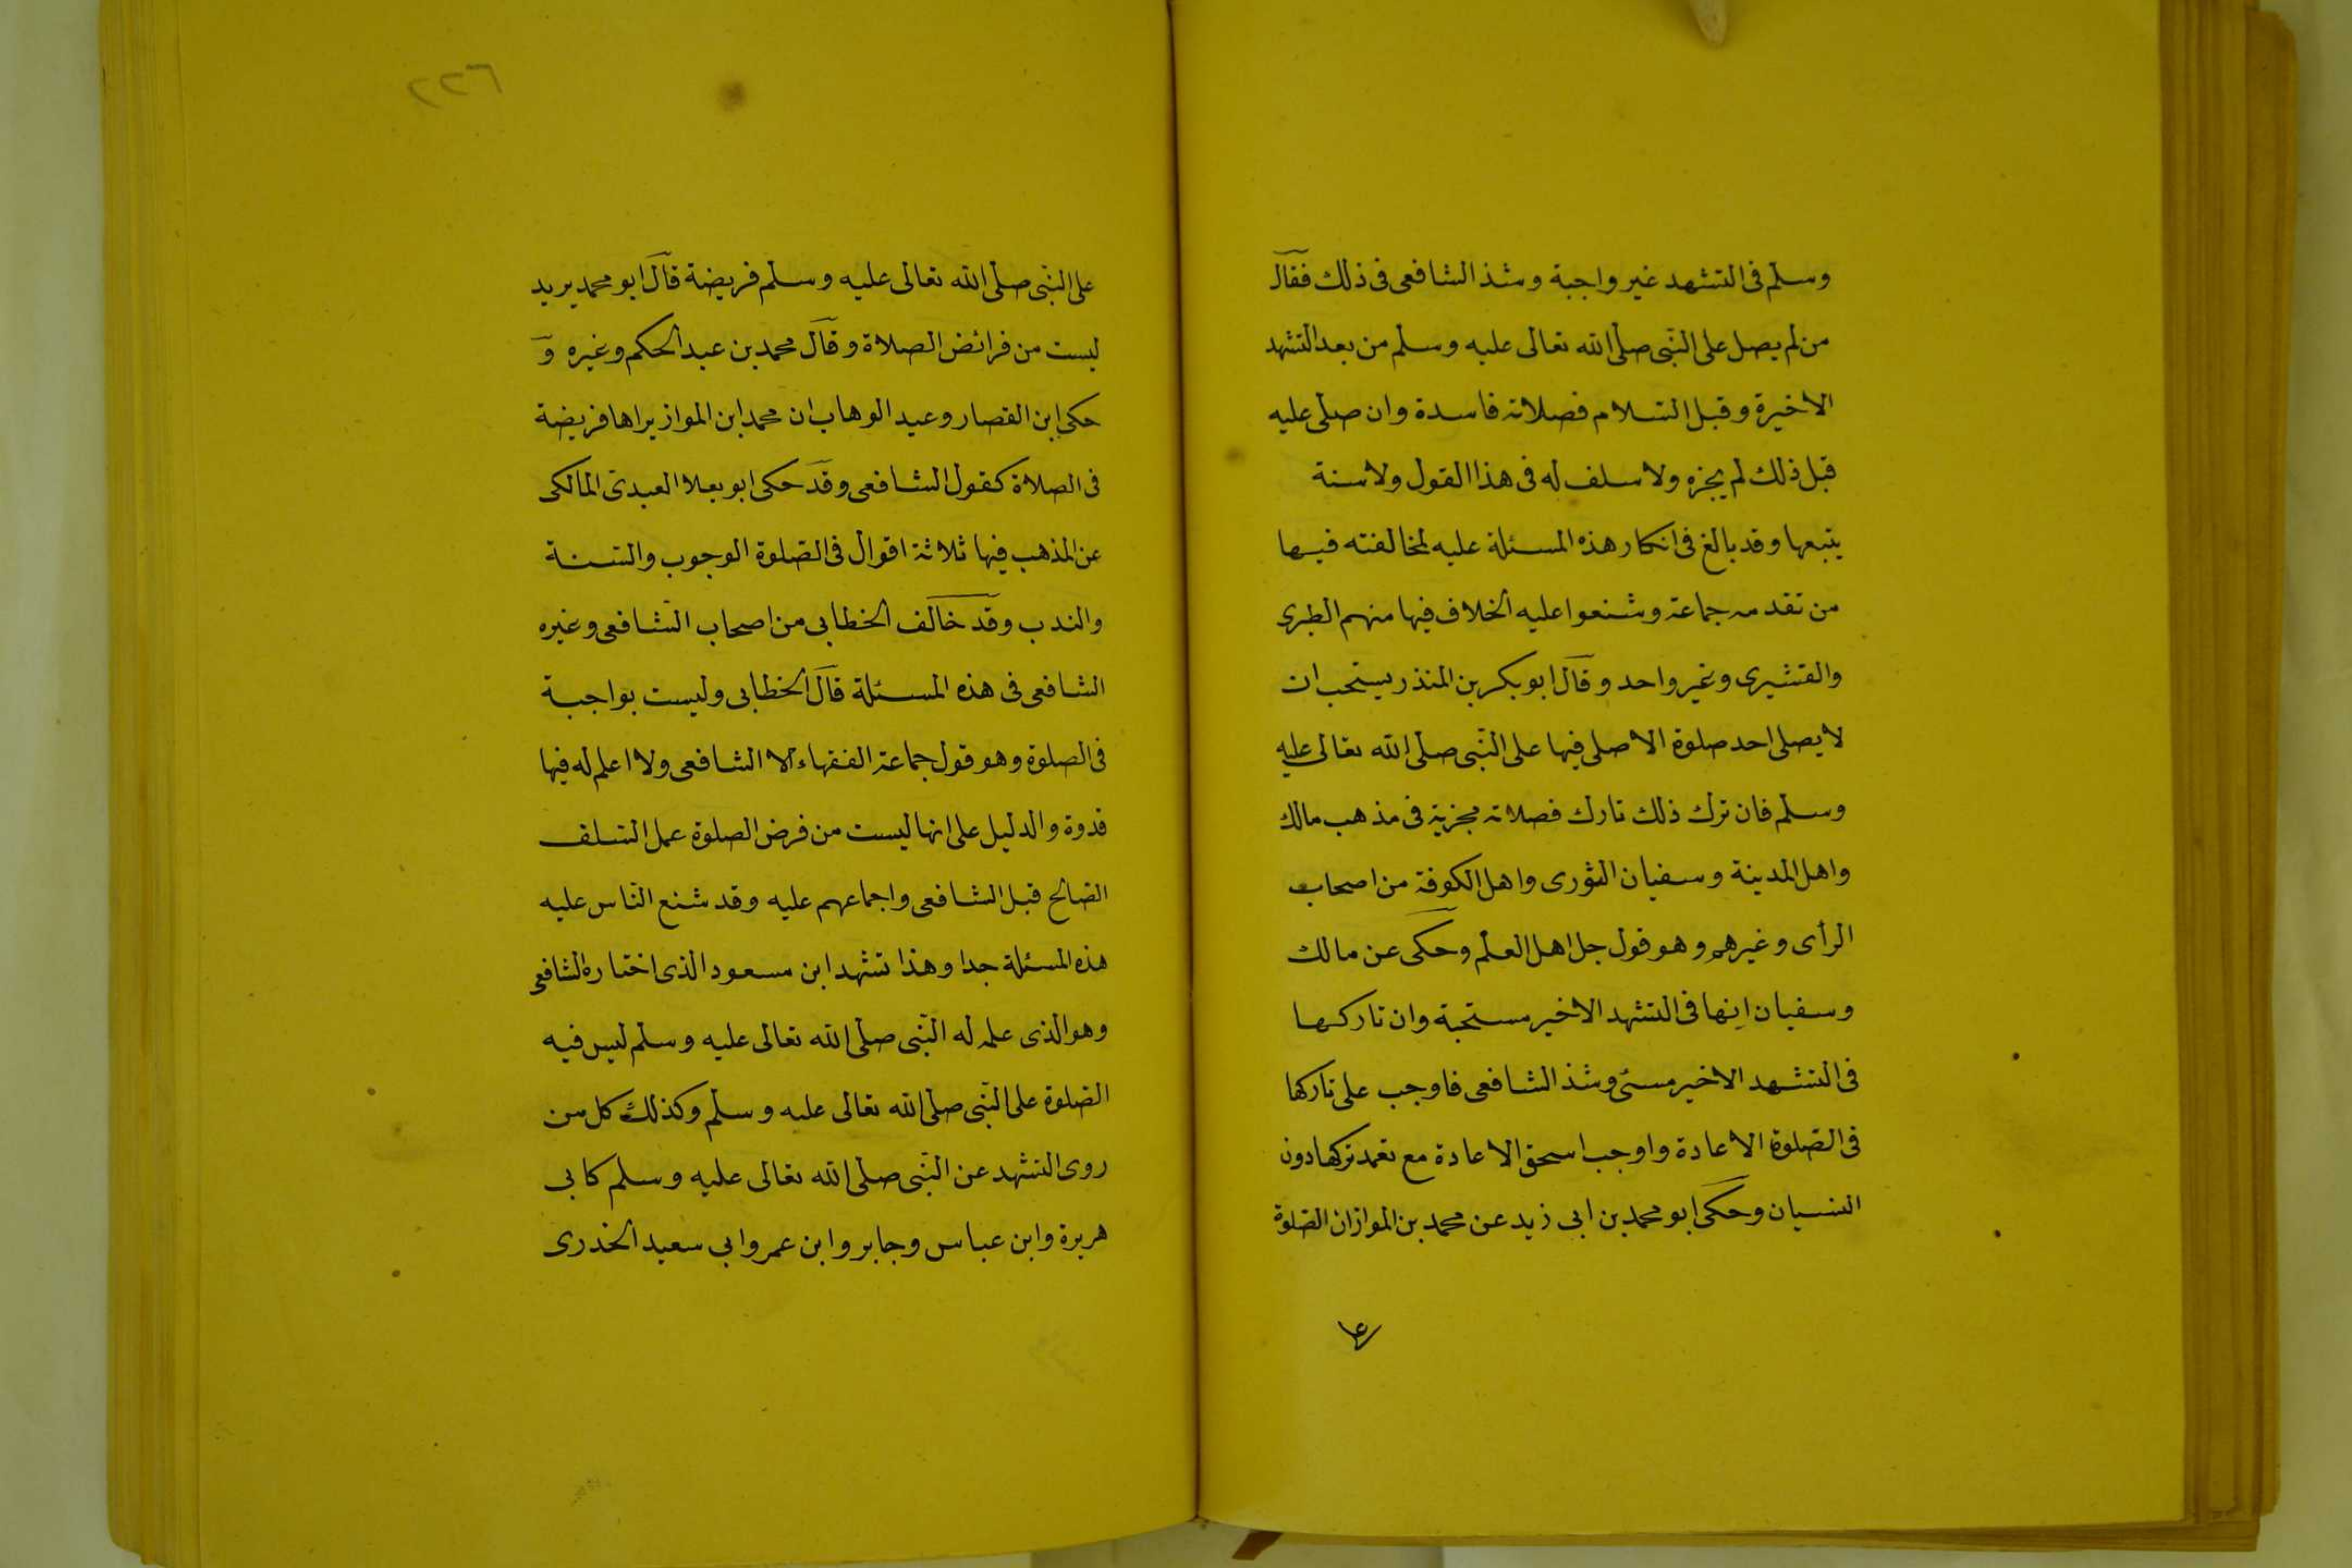 وسلم فى التشهد غير واجبة وشذ الشافعى فى ذلك فقال
من لم يصل على النبى صلى الله تعالى عليه وسلم من بعد التشهد
الاخيرة وقبل السلام فصلاته فاسدة وان صلى عليه
قبل ذلك لم يجزه ولا سلف له فى هذا القول ولا سنة
يتبعها وقد بالغ فى انكار هذه المسئلة عليه لمخالفته فيها
من تقدمه جماعة وشنعوا عليه الخلاف فيها منهم الطبرى
والقشيرى وغير واحد وقال ابو بكر بن المنذر يستحب ان
لا يصلى احد صلوة الا صلى فيها على النبى صلى الله تعالى عليه
وسلم فان ترك ذلك تارك فصلاته مجزية فى مذهب مالك
واهل المدينة وسفيان الثورى واهل الكوفة من اصحاب
الرأى وغيرهم وهو قول جل اهل العلم وحكى عن مالك
وسفيان انها فى التشهد الاخير مستحبة وان تاركها
فى التشهد الاخير مسئ وشذ الشافعى فاوجب على تاركها
فى الصلوة الاعادة واوجب اسحق الاعادة مع تعمد تركها دون
النسيان وحكى ابو محمد بن ابى زيد عن محمد بن المواز ان الصلوة
على
٦٢٢
على النبى صلى الله تعالى عليه وسلم فريضة قال ابو محمد يريد
ليست من فرائض الصلاة وقال محمد بن عبد الحكم وغيره و
حكى ابن القصار وعبد الوهاب ان محمد ابن المواز يراها فريضة
فى الصلاة كقول الشافعى وقد حكى ابو يعلا العبدى المالكى
عن المذهب فيها ثلاثة اقوال فى الصلوة الوجوب والسنة
والندب وقد خالف الخطابى من اصحاب الشافعى وغيره
الشافعى فى هذه المسئلة قال الخطابى وليست بواجبة
فى الصلوة وهو قول جماعة الفقهاء الا الشافعى ولا اعلم له فيها
قدوة والدليل على انها ليست من فرض الصلوة عمل السلف
الصالح قبل الشافعى واجماعهم عليه وقد شنع الناس عليه
هذه المسئلة جدا وهذا تشهد ابن مسعود الذى اختاره الشافعى
وهو الذى علمه له النبى صلى الله تعالى عليه وسلم ليس فيه
الصلوة على النبى صلى الله تعالى عليه وسلم وكذلك كل من
روى التشهد عن النبى صلى الله تعالى عليه وسلم كابى
هريرة وابن عباس وجابر وابن عمر وابى سعيد الخدرى